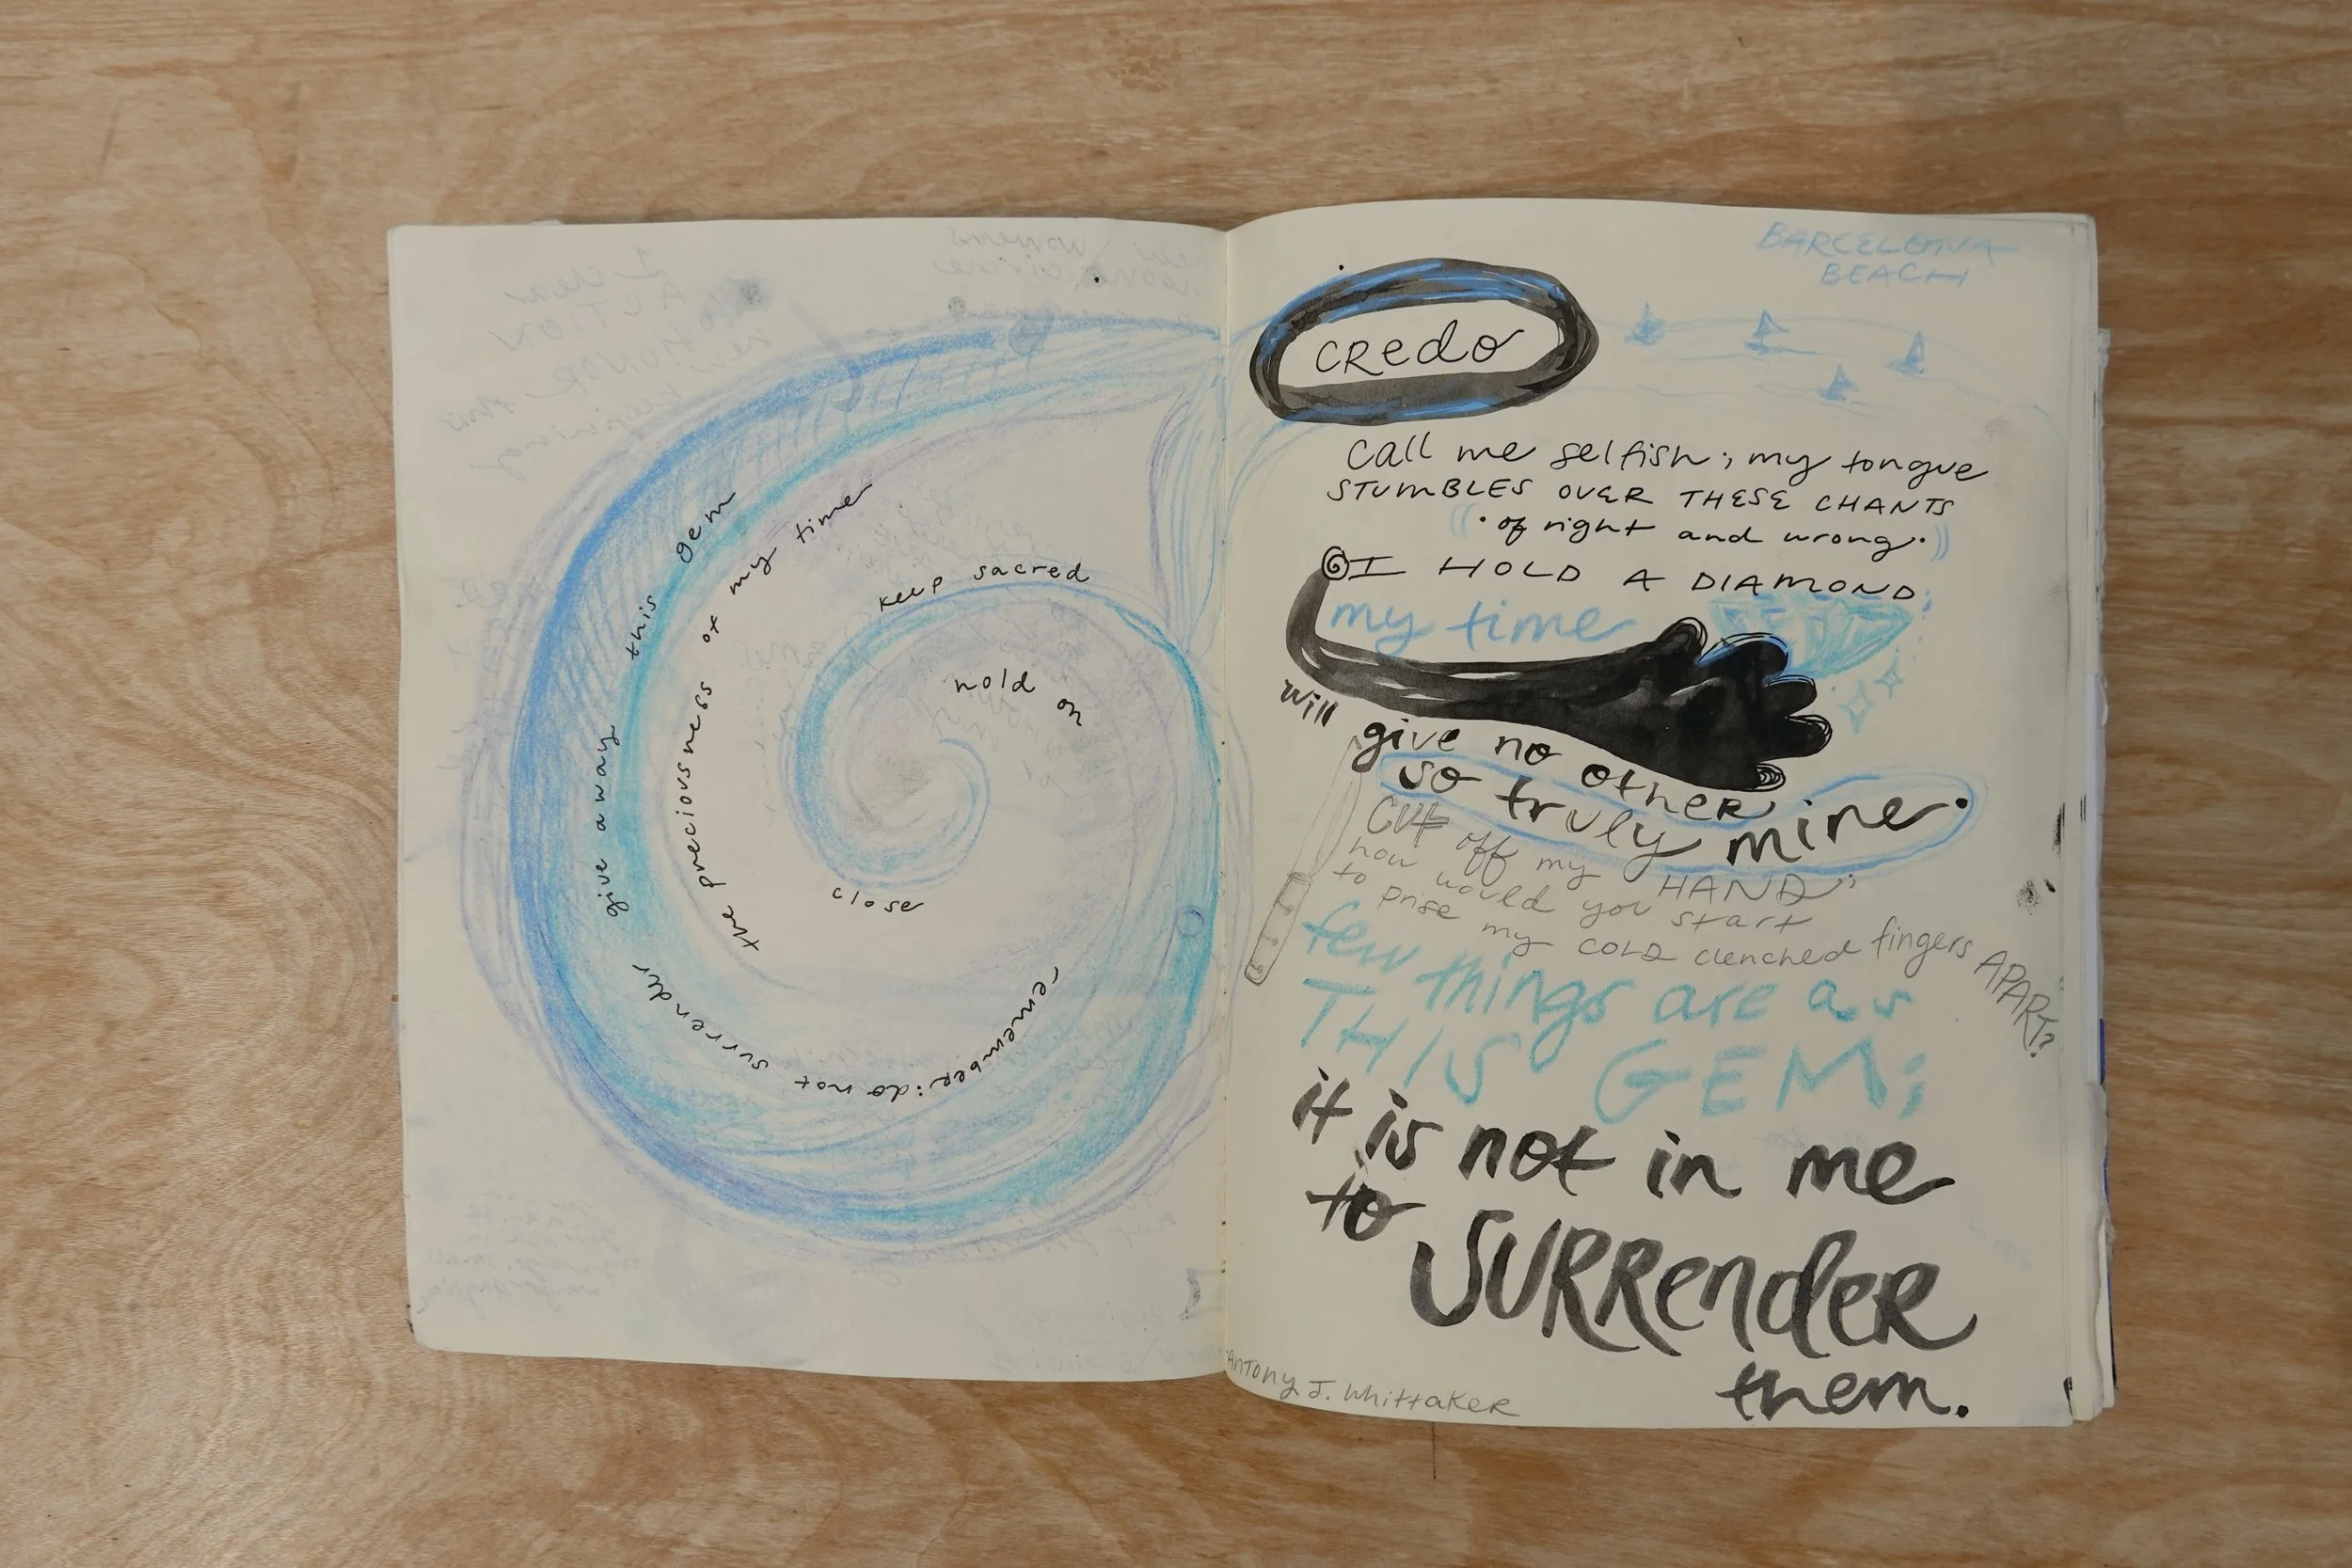 give away this gem
the preciousness of my time
keep sacred
hold on
close
remember: do not surrender
BARCELONA
BEACH
CREDO
Call me selfish; my tongue
STUMBLES OVER THESE CHANTS
of right and wrong.
I HOLD A DIAMOND
my time
will
give no other
so truly mine.
Cut off my HAND;
how would you start
to prise my COLD clenched fingers APART?
few things are as
THIS GEM;
it is not in me
to
SURRENDER
them.
ANTONY J. WHITTAKER